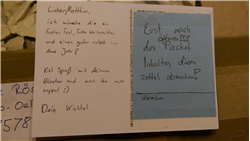 Lieber Matthias,
ich wünsche dir ein
frohes Fest, Frohe Weihnachten
und einen guten rutsch ins
neue Jahr!
Viel Spaß mit deinem
und mach ihn nicht
kaputt :)
Dein Wichtel
Erst nach
öffnen
des Packet
Inhaltes diesen
zettel abmachen!
578